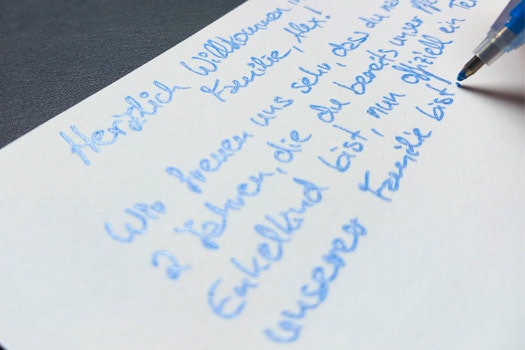 Herzlich Willkommen in
Familie, Alex!
Wir freuen uns sehr, dass du nach
2 Jahren, die du bereits unser
Enkelkind bist, nun offiziell ein Teil
unserer Familie bist